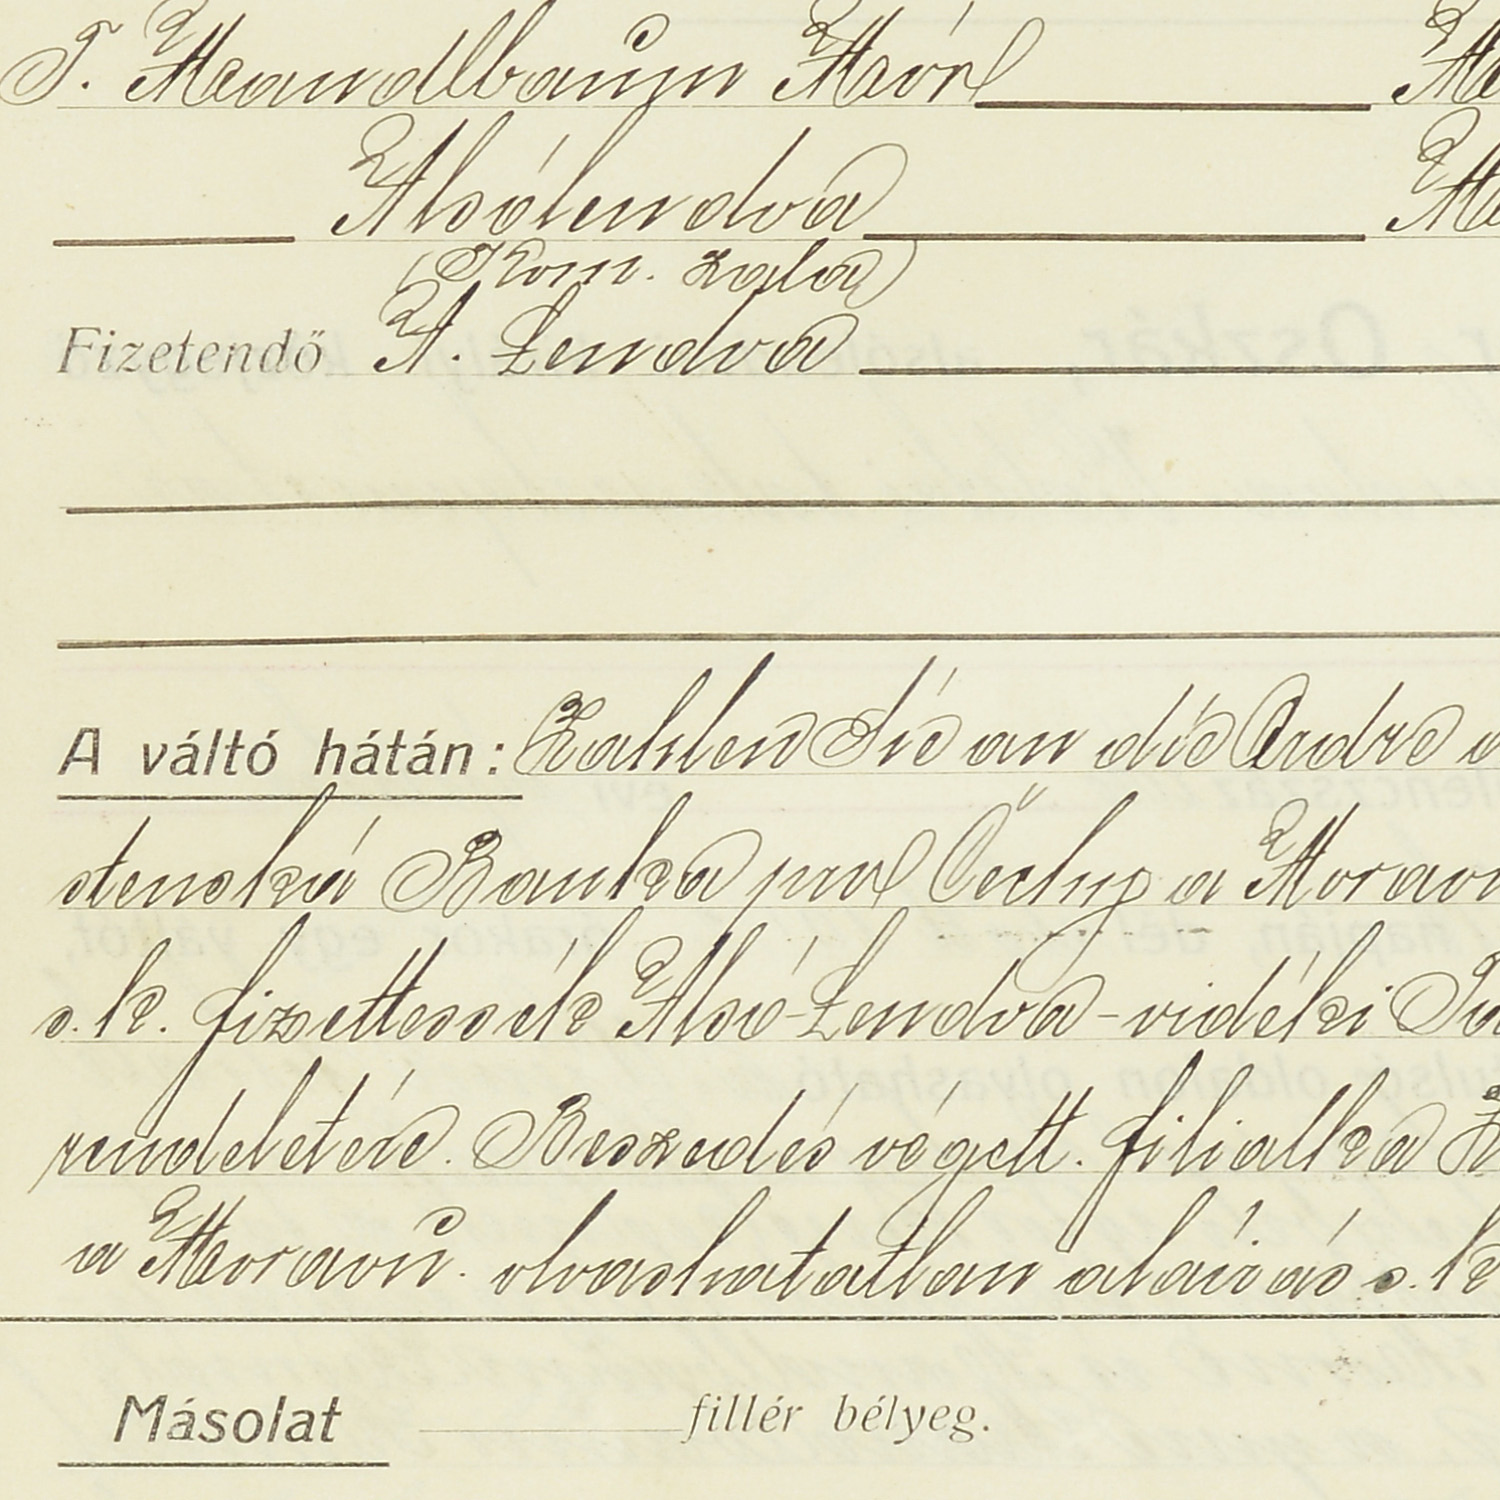 T. Mandlbaum Mór Me
Alsólendva Me
(Kom. Zala)
Fizetendő A. Lendva
A váltó hátán: Zahlen Sie an die Ordre
stenská Banka pro Čechy a Morav
s. k. fizettessék Alsó-Lendva-vidéki
rendeletére. Beszedés végett. Filialka
a Moravu. olvashatatlan aláirás s. k
Másolat fillér bélyeg.